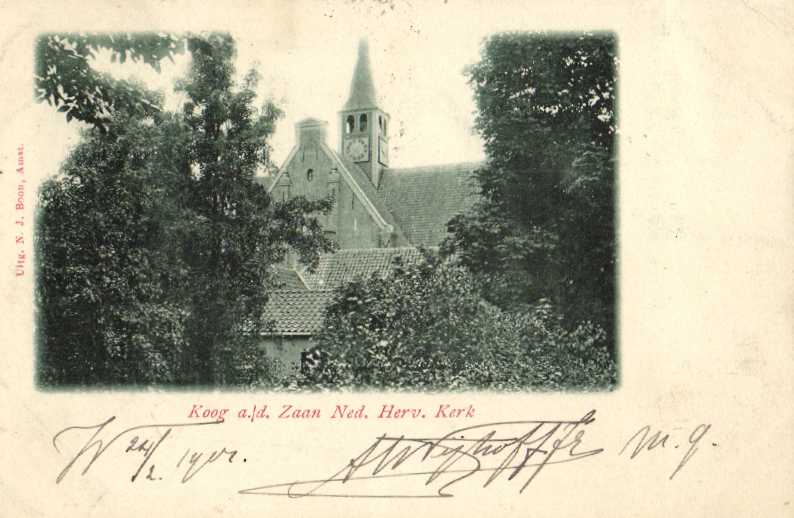 Uitg. N. J. Boon, Amst.
Koog a./d. Zaan Ned. Herv. Kerk
W 24/2 1901. m. q.